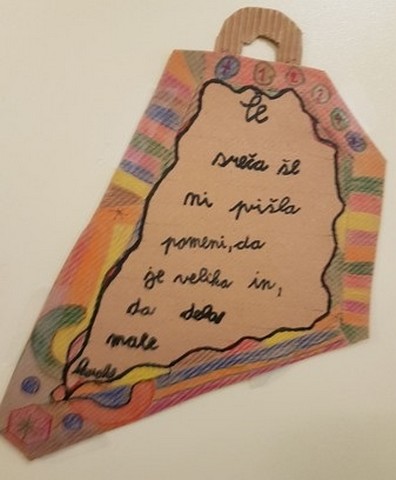 Če
sreča še
ni prišla
pomeni, da
je velika in,
da dela
male
korake